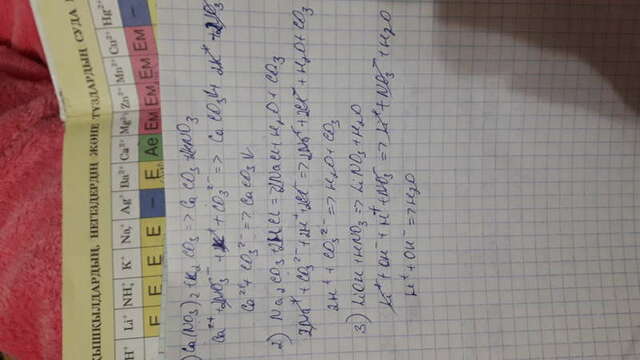 ҚЫШҚЫЛДАРДЫҢ, НЕГІЗДЕРДІҢ ЖӘНЕ ТҰЗДАРДЫҢ СУДА
H⁺ Li⁺ NH₄⁺ K⁺ Na⁺ Ag⁺ Ba²⁺ Ca²⁺ Mg²⁺ Zn²⁺ Mn²⁺ Cu²⁺ Hg²⁺
E E E E – E Ае Ем Ем Ем Ем –
) Ca(NO₃)₂ + K₂CO₃ => CaCO₃ + 2KNO₃
Ca²⁺ + 2NO₃⁻ + 2K⁺ + CO₃²⁻ => CaCO₃↓ + 2K⁺ + 2NO₃⁻
Ca²⁺ + CO₃²⁻ => CaCO₃↓
2) Na₂CO₃ + 2HCl = 2NaCl + H₂O + CO₃
2Na⁺ + CO₃²⁻ + 2H⁺ + 2Cl⁻ => 2Na⁺ + 2Cl⁻ + H₂O + CO₃
2H⁺ + CO₃²⁻ => H₂O + CO₃
3) LiOH + HNO₃ => LiNO₃ + H₂O
Li⁺ + OH⁻ + H⁺ + NO₃⁻ => Li⁺ + NO₃⁻ + H₂O
H⁺ + OH⁻ => H₂O